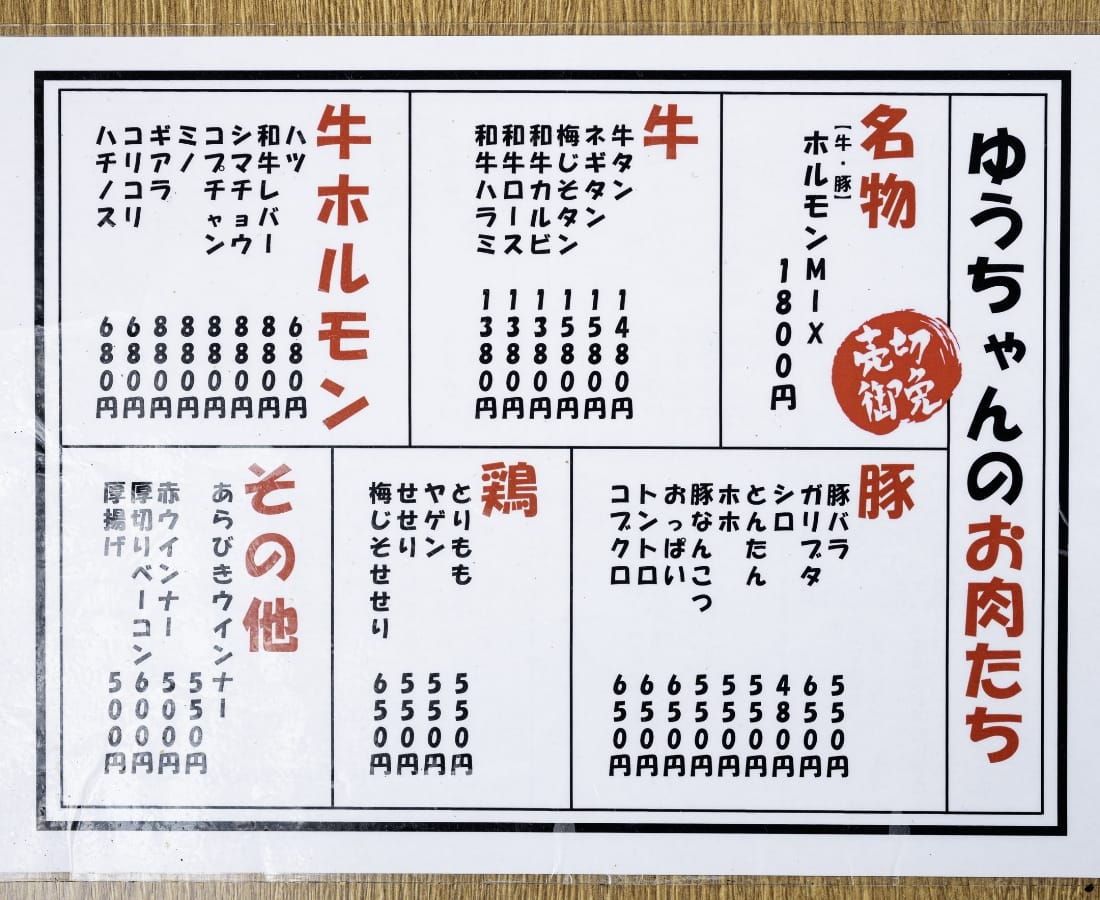 ゆうちゃんのお肉たち
名物
【牛・豚】
ホルモンMIX
1800円
売切御免
牛
牛タン 1480円
ネギタン 1580円
梅じそタン 1580円
和牛カルビ 1380円
和牛ロース 1380円
和牛ハラミ 1380円
牛ホルモン
ハツ 680円
和牛レバー 880円
シマチョウ 880円
コプチャン 880円
ミノ 880円
ギアラ 880円
コリコリ 680円
ハチノス 680円
豚
豚バラ 550円
ガリブタ 650円
シロ 480円
とんたん 550円
ホホ 550円
豚なんこつ 550円
おっぱい 650円
トントロ 650円
コブクロ 650円
鶏
とりもも 550円
ヤゲン 550円
せせり 550円
梅じそせせり 650円
その他
あらびきウインナー
550円
赤ウインナー 500円
厚切りベーコン 600円
厚揚げ 500円